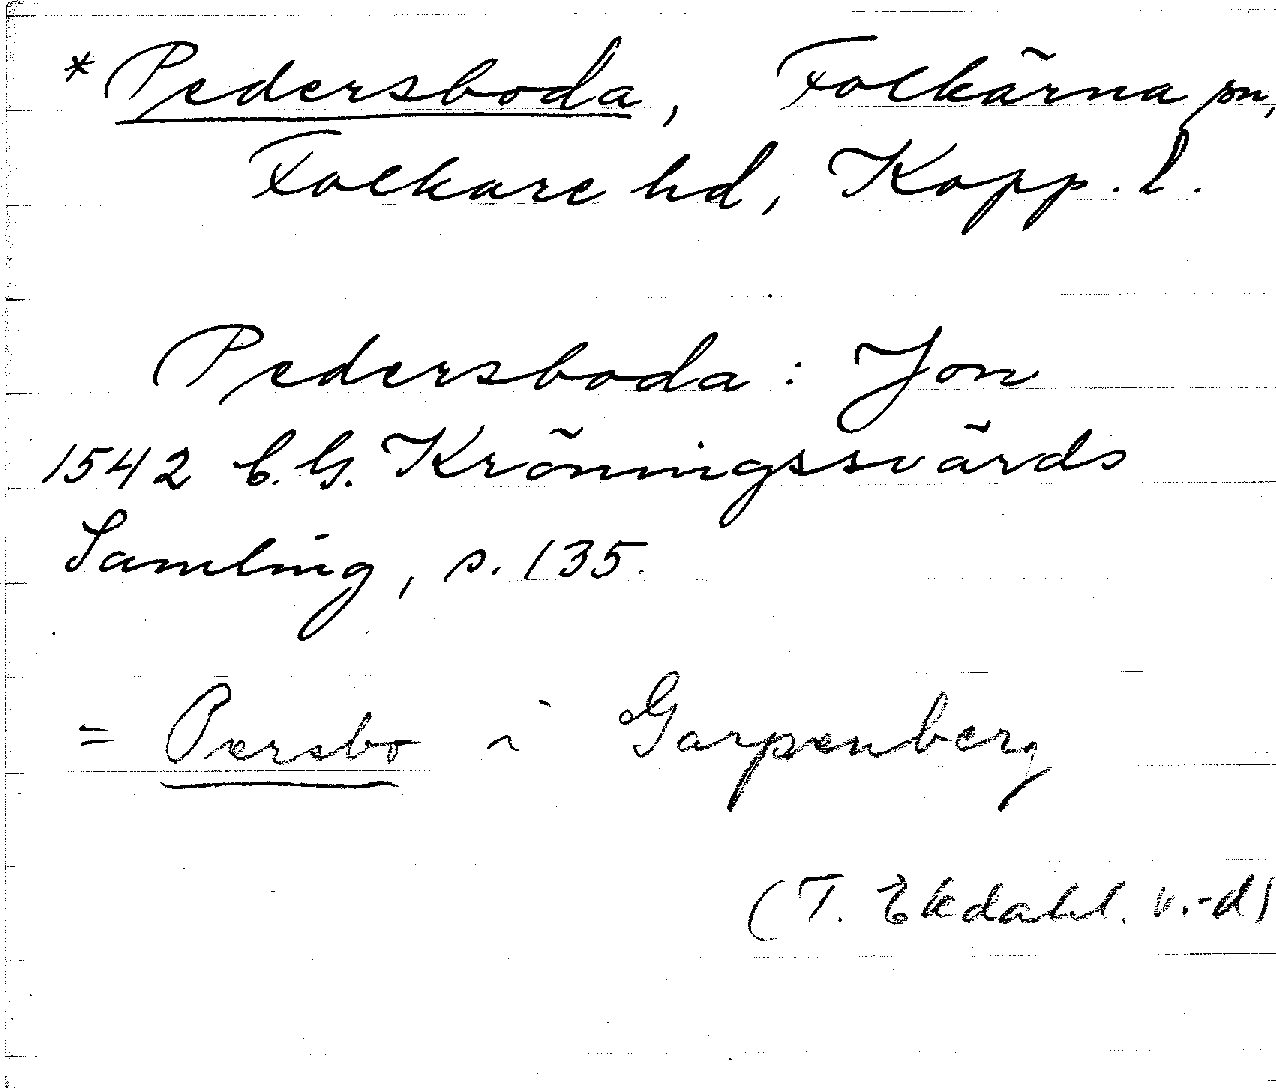 *Pedersboda, Folkärna sn,
Folkare hd, Kopp. l.
Pedersboda: Jon
1542 C.G. Kröningssvärds
Samling, s. 135.
= Persbo i Garpenberg
(T. Ekdahl.